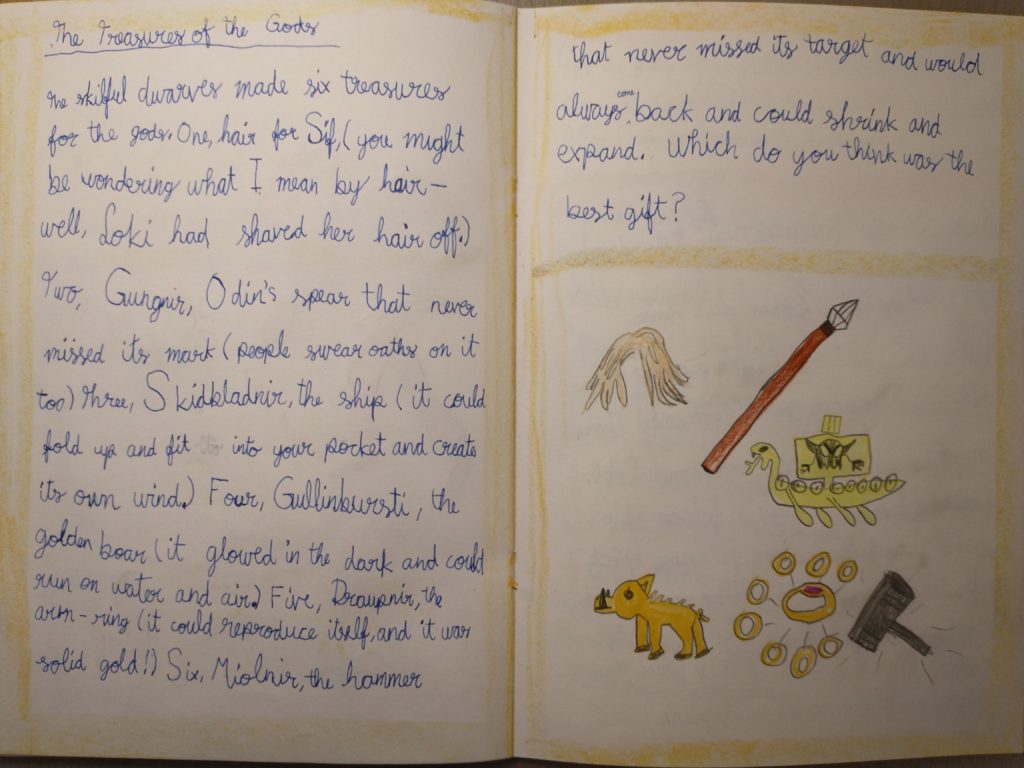 The Treasures of the Gods
The skilful dwarves made six treasures
for the gods. One, hair for Sif, (you might
be wondering what I mean by hair—
well, Loki had shaved her hair off.)
Two, Gungnir, Odin's spear that never
missed its mark (people swear oaths on it
too) Three, Skidbladnir, the ship (it could
fold up and fit into your pocket and create
its own wind.) Four, Gullinbursti, the
golden boar (it glowed in the dark and could
run on water and air.) Five, Draupnir, the
arm-ring (it could reproduce itself, and it was
solid gold!) Six, Miolnir, the hammer
that never missed its target and would
always come back and could shrink and
expand. Which do you think was the
best gift?